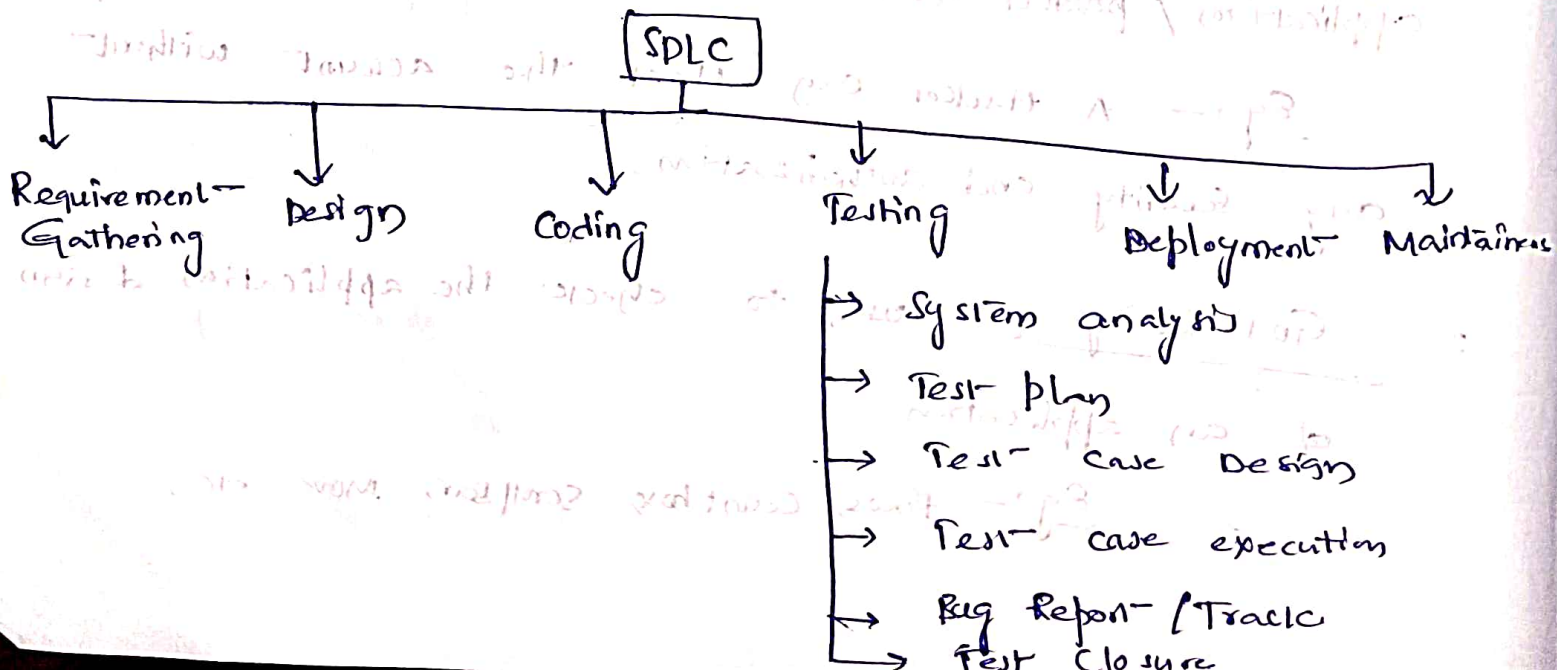 SDLC
Requirement
Gathering
Design
Coding
Testing
Deployment
Maintaines
System analysis
Test plan
Test case Design
Test case execution
Bug Report / Track
Test Closure